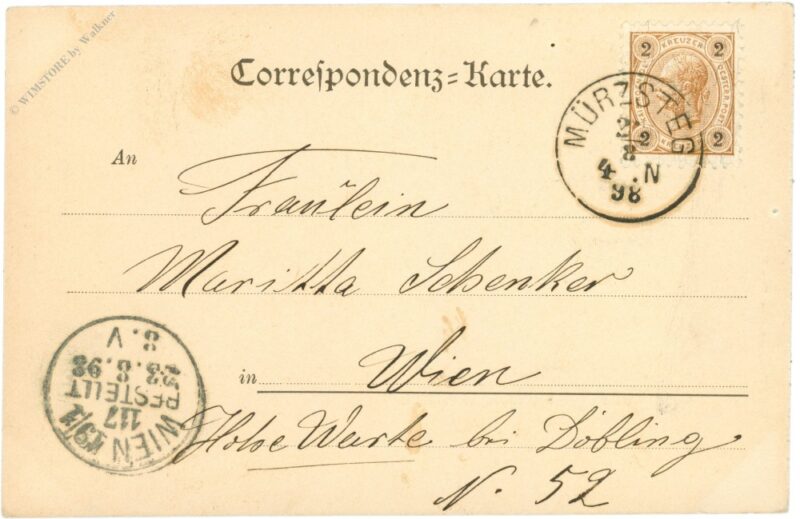 © WIMSTORE by Walkner
Correspondenz-Karte.
2 KREUZER 2
2 2
MÜRZSTEG
8
4. N
98
An
Fräulein
Maritta Schenker
in Wien
Hohe Warte bei Döbling
N. 52
WIEN 19/1
117
BESTELLT
8.98
8. V